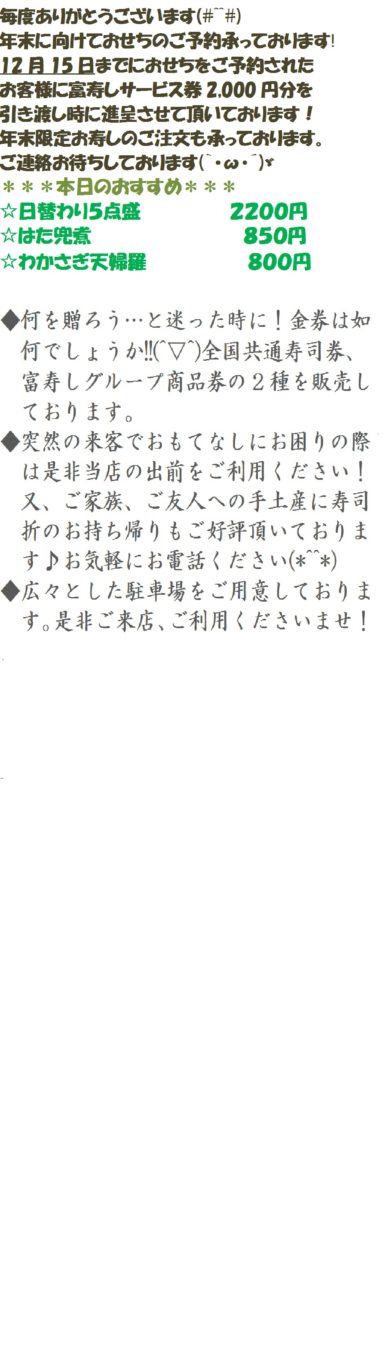 毎度ありがとうございます(#^^#)
年末に向けておせちのご予約承っております!
12月15日までにおせちをご予約された
お客様に富寿しサービス券2,000円分を
引き渡し時に進呈させて頂いております！
年末限定お寿しのご注文も承っております。
ご連絡お待ちしております(｀・ω・´)ゞ
＊＊＊本日のおすすめ＊＊＊
☆日替わり5点盛 2200円
☆はた兜煮 850円
☆わかさぎ天婦羅 800円
◆何を贈ろう…と迷った時に！金券は如
何でしょうか!!(^▽^)全国共通寿司券、
富寿しグループ商品券の２種を販売し
ております。
◆突然の来客でおもてなしにお困りの際
は是非当店の出前をご利用ください！
又、ご家族、ご友人への手土産に寿司
折のお持ち帰りもご好評頂いておりま
す♪お気軽にお電話ください(*^^*)
◆広々とした駐車場をご用意しておりま
す。是非ご来店、ご利用くださいませ！